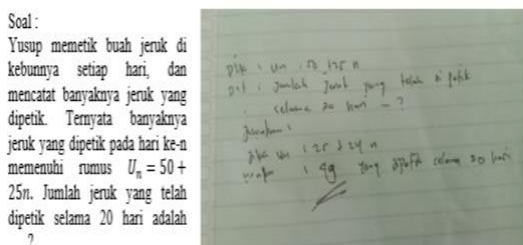 Soal :
Yusup memetik buah jeruk di
kebunnya setiap hari, dan
mencatat banyaknya jeruk yang
dipetik. Ternyata banyaknya
jeruk yang dipetik pada hari ke-n
memenuhi rumus Uₙ = 50 +
25n. Jumlah jeruk yang telah
dipetik selama 20 hari adalah
?
Dik : un :
Dit : Jumlah Jeruk yang telah di petik
selama 20 hari - ?
Jawaban :
un :
yang dipetik selama 20 hari